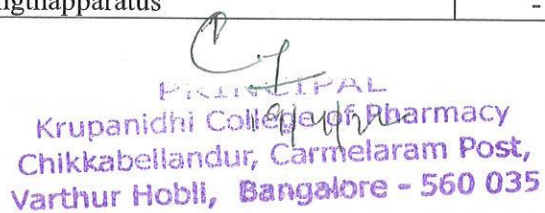 ngthapparatus -
PRINCIPAL
Krupanidhi College of Pharmacy
Chikkabellandur, Carmelaram Post,
Varthur Hobli, Bangalore - 560 035